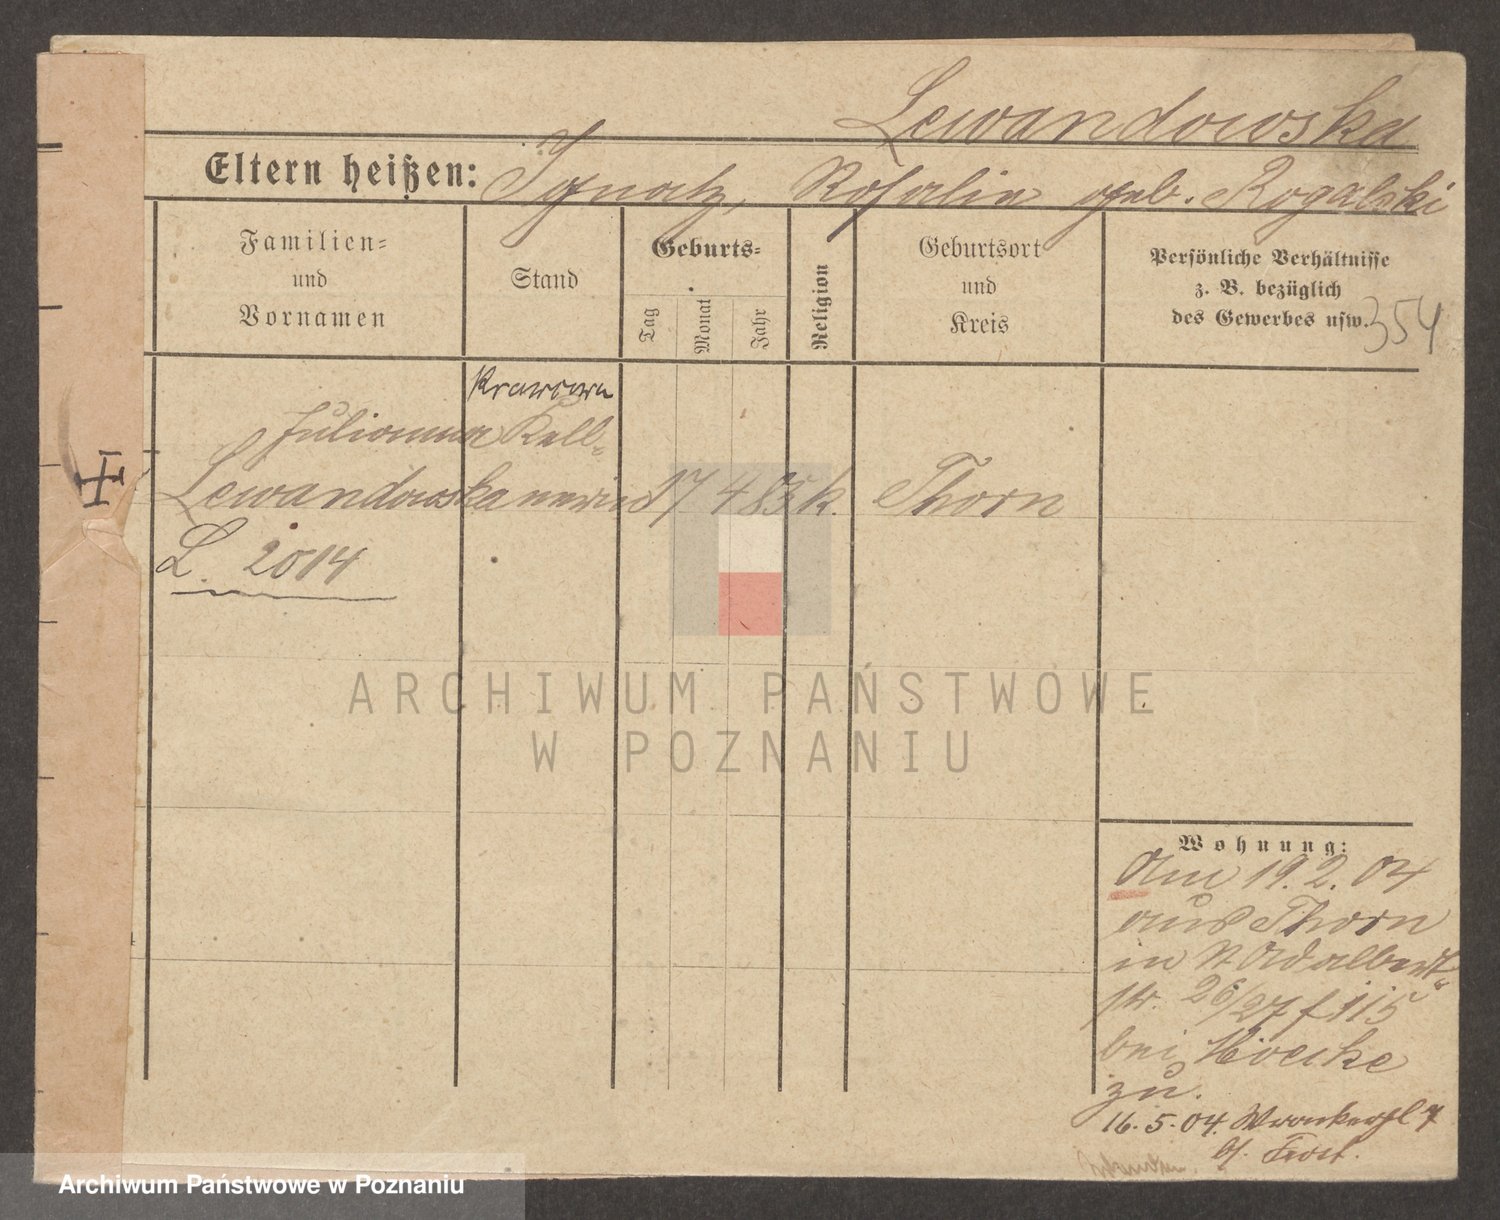 Lewandowska
Eltern heißen: Ignatz, Rosalie geb. Rogalski
Familien=
und
Vornamen
Stand
Geburts=
Tag
Monat
Jahr
Religion
Geburtsort
und
Kreis
Persönliche Verhältnisse
z. B. bezüglich
des Gewerbes usw.
354
Julianna Kell=
Lewandowska nerin 17 4 85 k. Thorn
L. 2014
ARCHIWUM PAŃSTWOWE
W POZNANIU
Wohnung:
Am 19. 2. 04
aus Thorn
in St Adalbert
str. 26/27 f 115
bei
zu.
16. 5. 04.
Archiwum Państwowe w Poznaniu